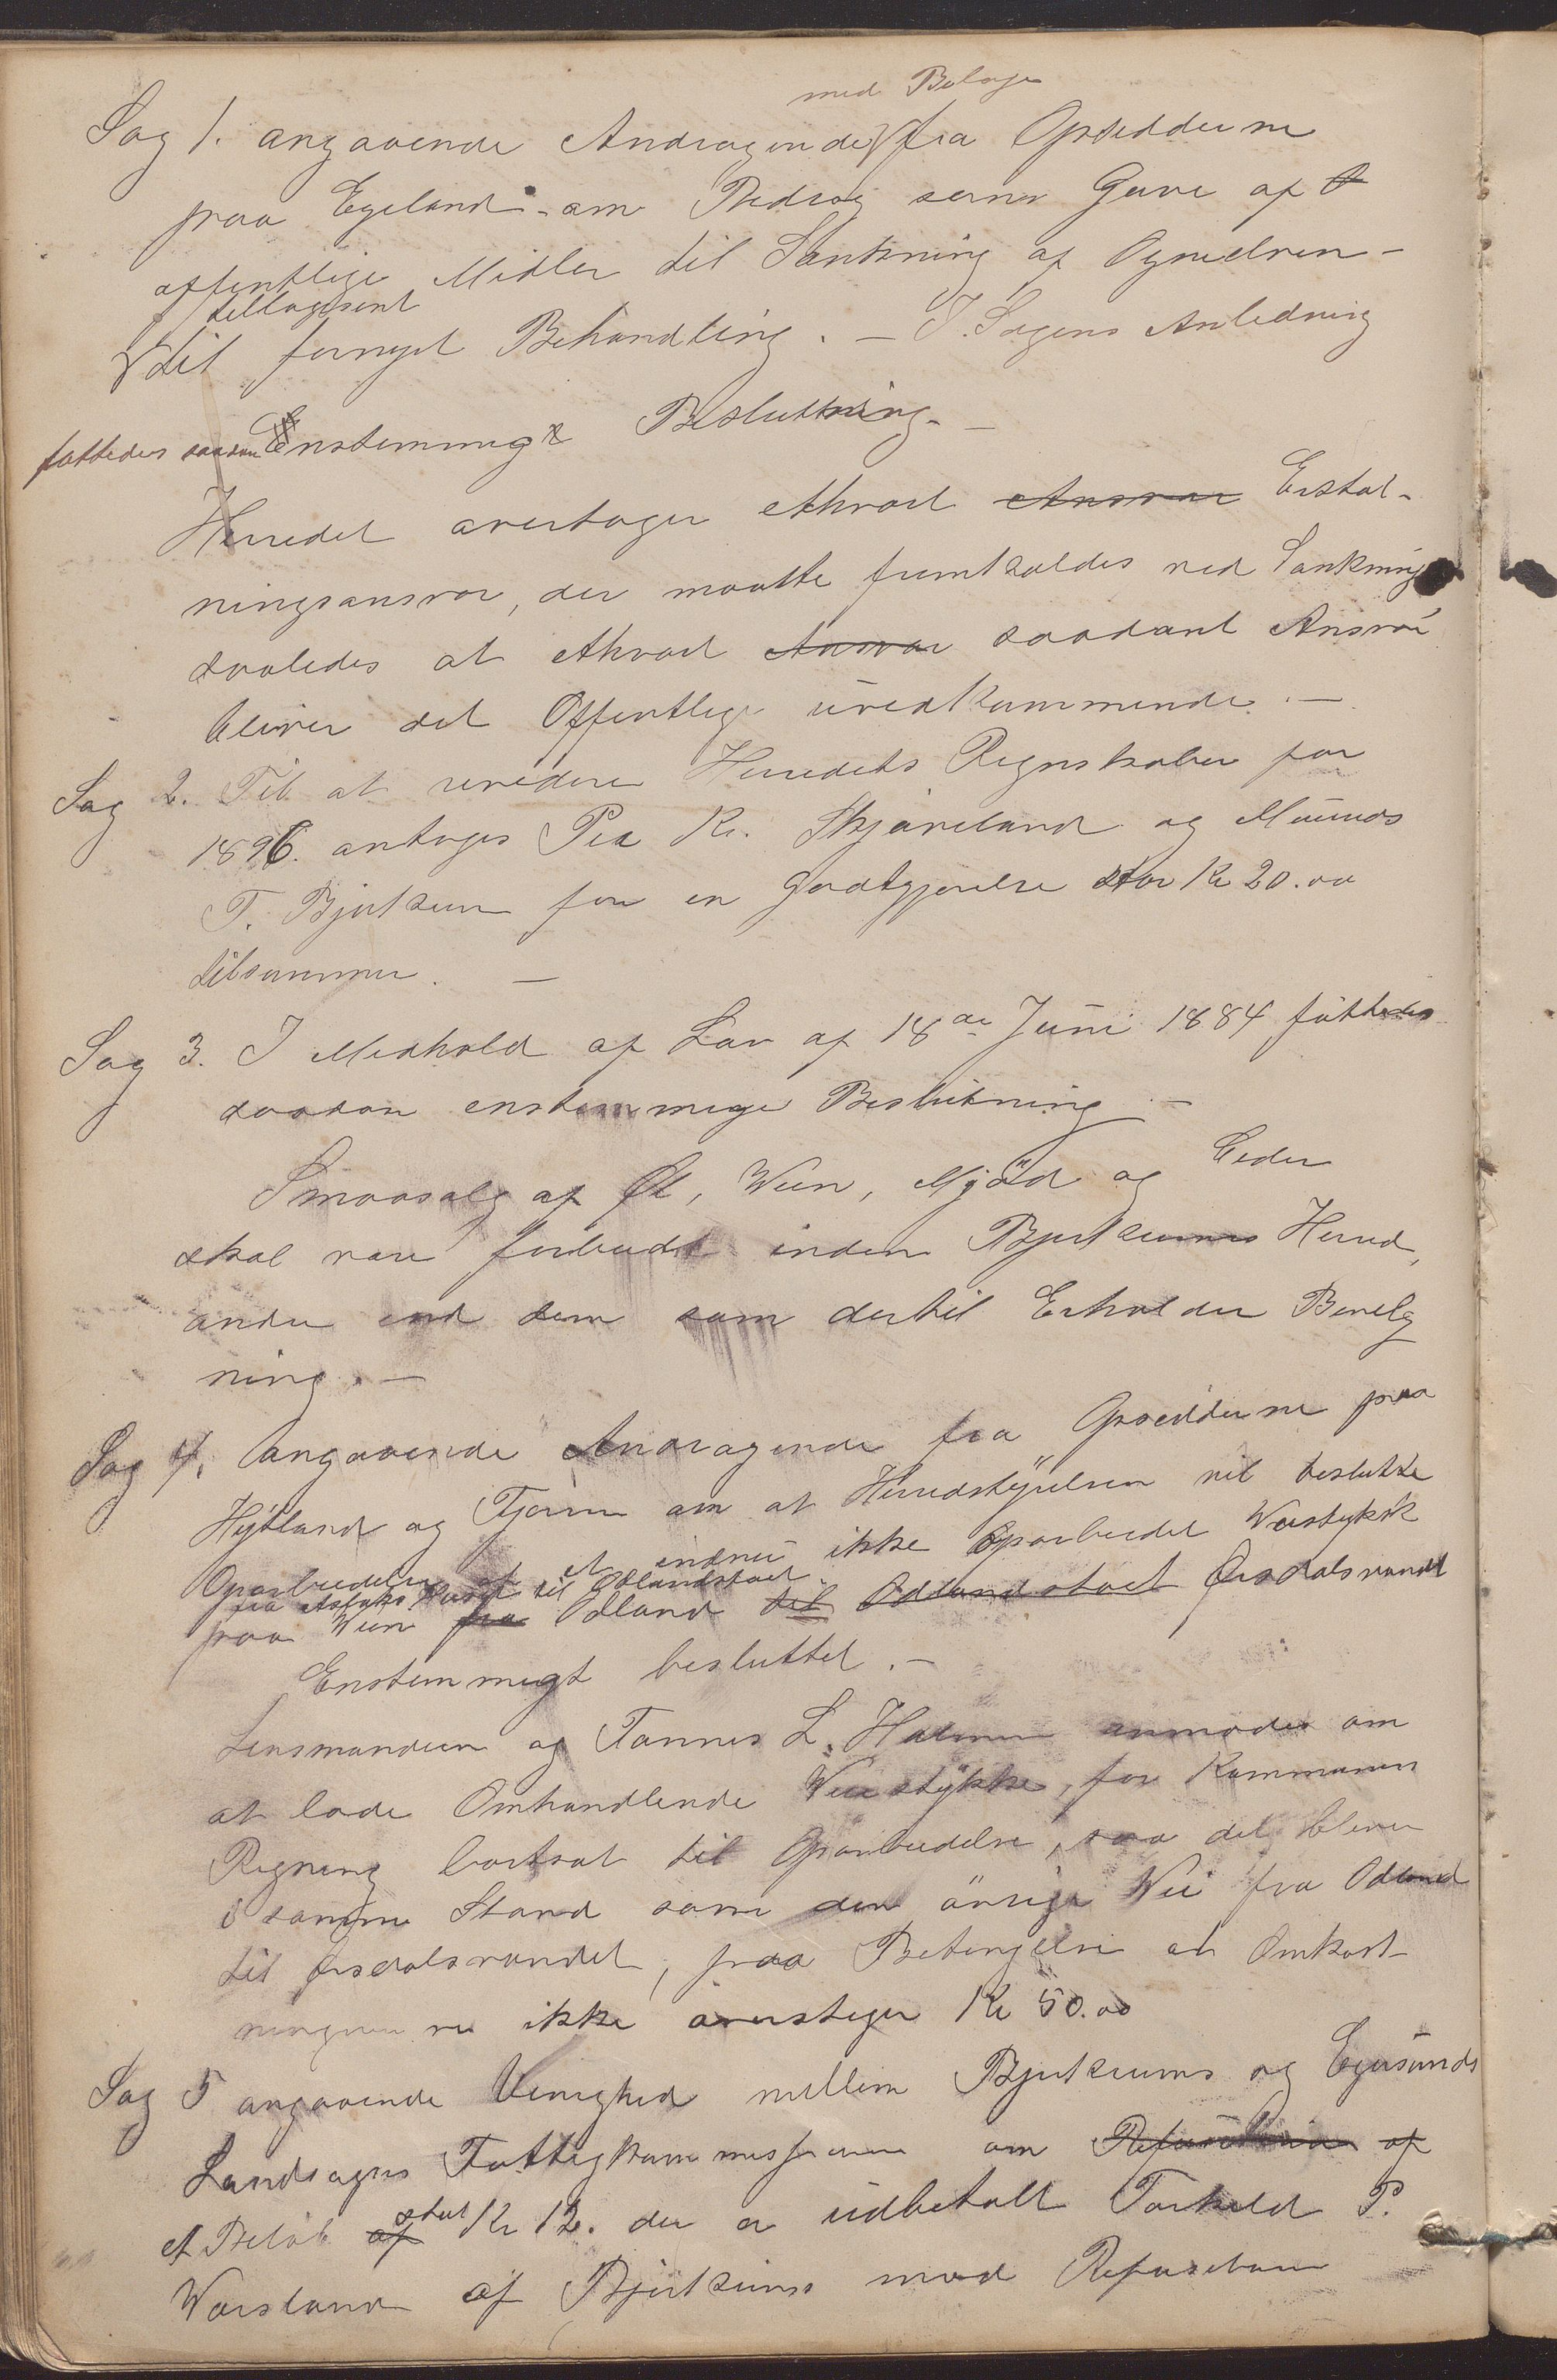 med Belage
Sag 1. angaaende Andragende fra Opsidderne
paa Egeland om Bedrag som Gave af
offentlige Midler til Sænkning af Ognedren-
tillagsent
til fornyet Behandling. — I Sagens Anledning
fattedes saadan Enstemmige Beslutning. —
Herredet overtager ethvert Ansvar Erstat-
ningsansvar, der maatte fremkaldes ved Sænkning
saaledes at ethvert Ansvar saadant Ansvar
bliver det Offentlige uvedkommende. —
Sag 2. Til at revidere Herredets Regnskaber for
1896. antoges Per Kr. Skjæveland og Maunds
T. Bjerkreim for en Godtgjørelse stor Kr 20.00
tilsammen. —
Sag 3. I Medhold af Lov af 18de Juni 1884 fattedes
saadan enstemmige Beslutning —
Smaasalg af Øl, Viin, Mjød og Ceder
skal være forbudt inden Bjerkreims Herred,
andre end dem som dertil Erholder Bevilg
ning. —
Sag 4. angaaende Andragende fra Opsidderne paa
Hytland og Tjørn om at Herredstyrelsen vil beslutte
Oparbeidelse af et endnu ikke Oparbeidet Veistykke
fra Aslaks Huset til Ødlandstøet
paa Veien fra Ødland til Ødlandstøet Ørsdalsvandt
Enstemmigt besluttet. —
Lensmanden og Tønnes L. Hålmen anmodes om
at lade Omhandlende Veistykke, for Kommunens
Regning bortsat til Oparbeidelse, saa det bliver
i samme Stand som den øvrige Vei fra Ødland
til Ørsdalsvandet, paa Betingelse at Omkost-
ningerne ikke överstiger Kr 50.00
Sag 5 angaaende Uenighed mellem Bjerkreims og Egersunds
Landsogns Fattigkommissioner om Refusion af
et Beløb af stort Kr 12. der er udbetalt Torkeld P.
Versland af Bjerkreims mod Refusion